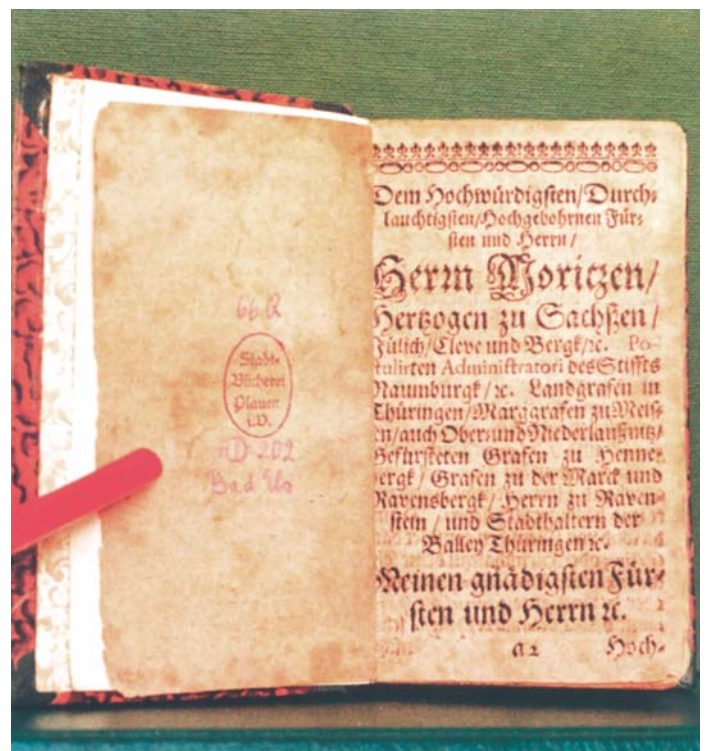 66 R
Stadt-
Bücherei
Plauen
i.V.
AD-202
Bad
Dem Hochwürdigsten/Durch-
lauchtigsten/Hochgebohrnen Für-
sten und Herrn/
Herrn Moritzen/
Hertzogen zu Sachßen/
Jülich/Cleve und Bergk/ꝛc. Po-
tulirten Administratori des Stiffts
Naumburgk/ꝛc. Landgrafen in
Thüringen/Marggrafen zu Meis-
en/auch Ober-und Niederlaußnitz/
Gefürsteten Grafen zu Henne-
ergk/Grafen zu der Marck und
Ravensbergk/Herrn zu Raven-
stein/und Stadthaltern der
Balley Thüringen ꝛc.
Meinen gnädigsten Für-
sten und Herrn ꝛc.
a 2 Hoch-